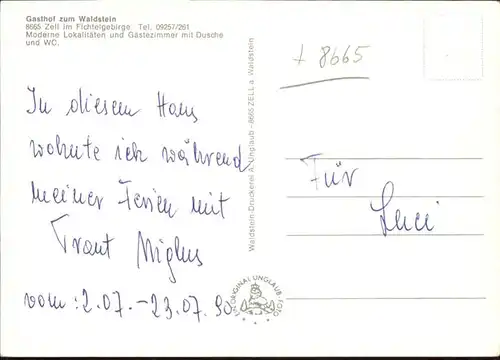 Gasthof zum Waldstein
8665 Zell im Fichtelgebirge Tel. 09257/261
Moderne Lokalitäten und Gästezimmer mit Dusche
und WC.
+ 8665
In diesem Haus
wohnte ich während
meiner Ferien mit
Traut
vom: 2.07.–23.07.90
Waldstein-Druckerei A. Unglaub - 8665 ZELL a. Waldstein
Für
Luci
EIN ORIGINAL UNGLAUB FOTO